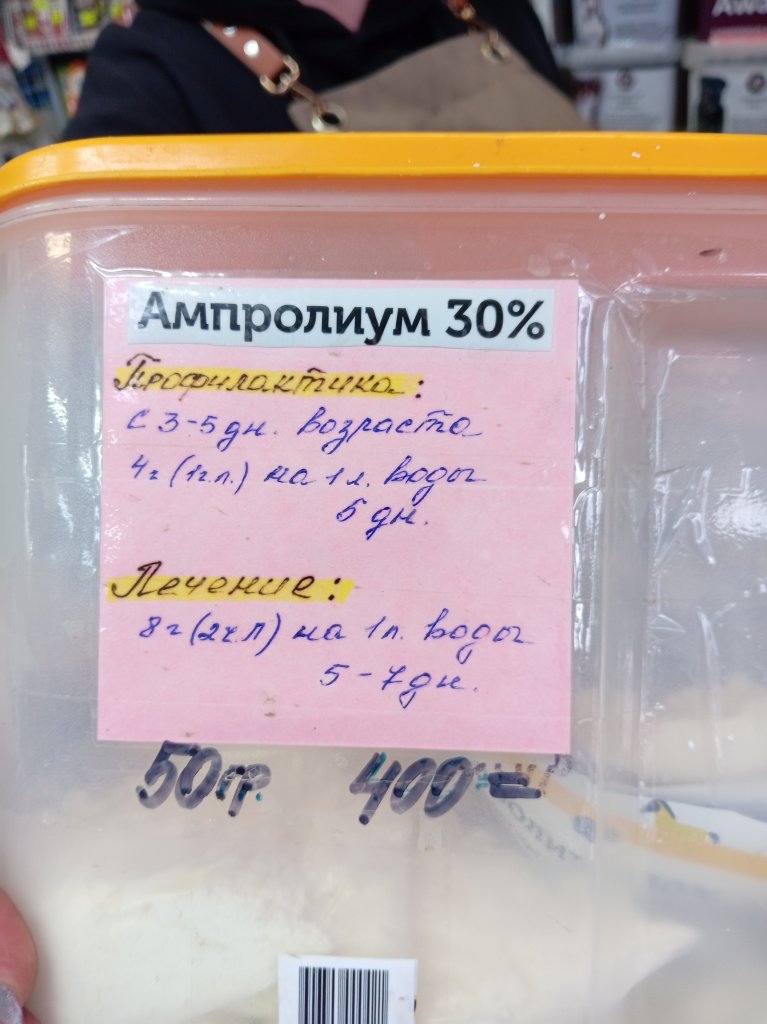 Ампролиум 30%
Профилактика:
с 3-5 дн. возраста
4г (1ч.л.) на 1л. воды
5 дн.
Лечение:
8г (2ч.л) на 1л. воды
5-7 дн.
50гр. 400=